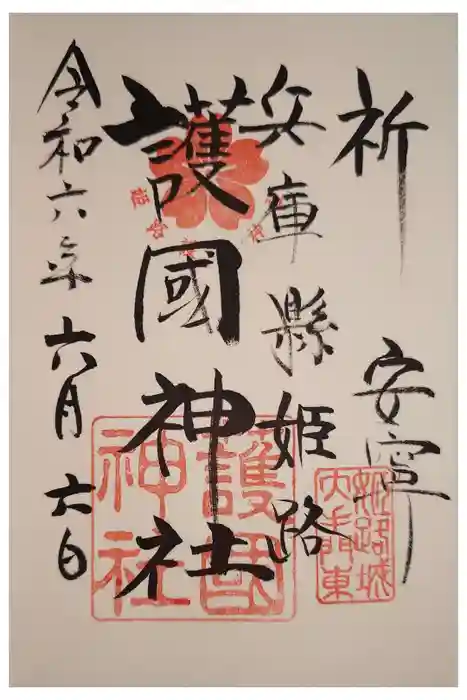 祈 安寧
兵庫縣姫路
護國神社
令和六年六月六日
護國神社
姫路城
大手門東